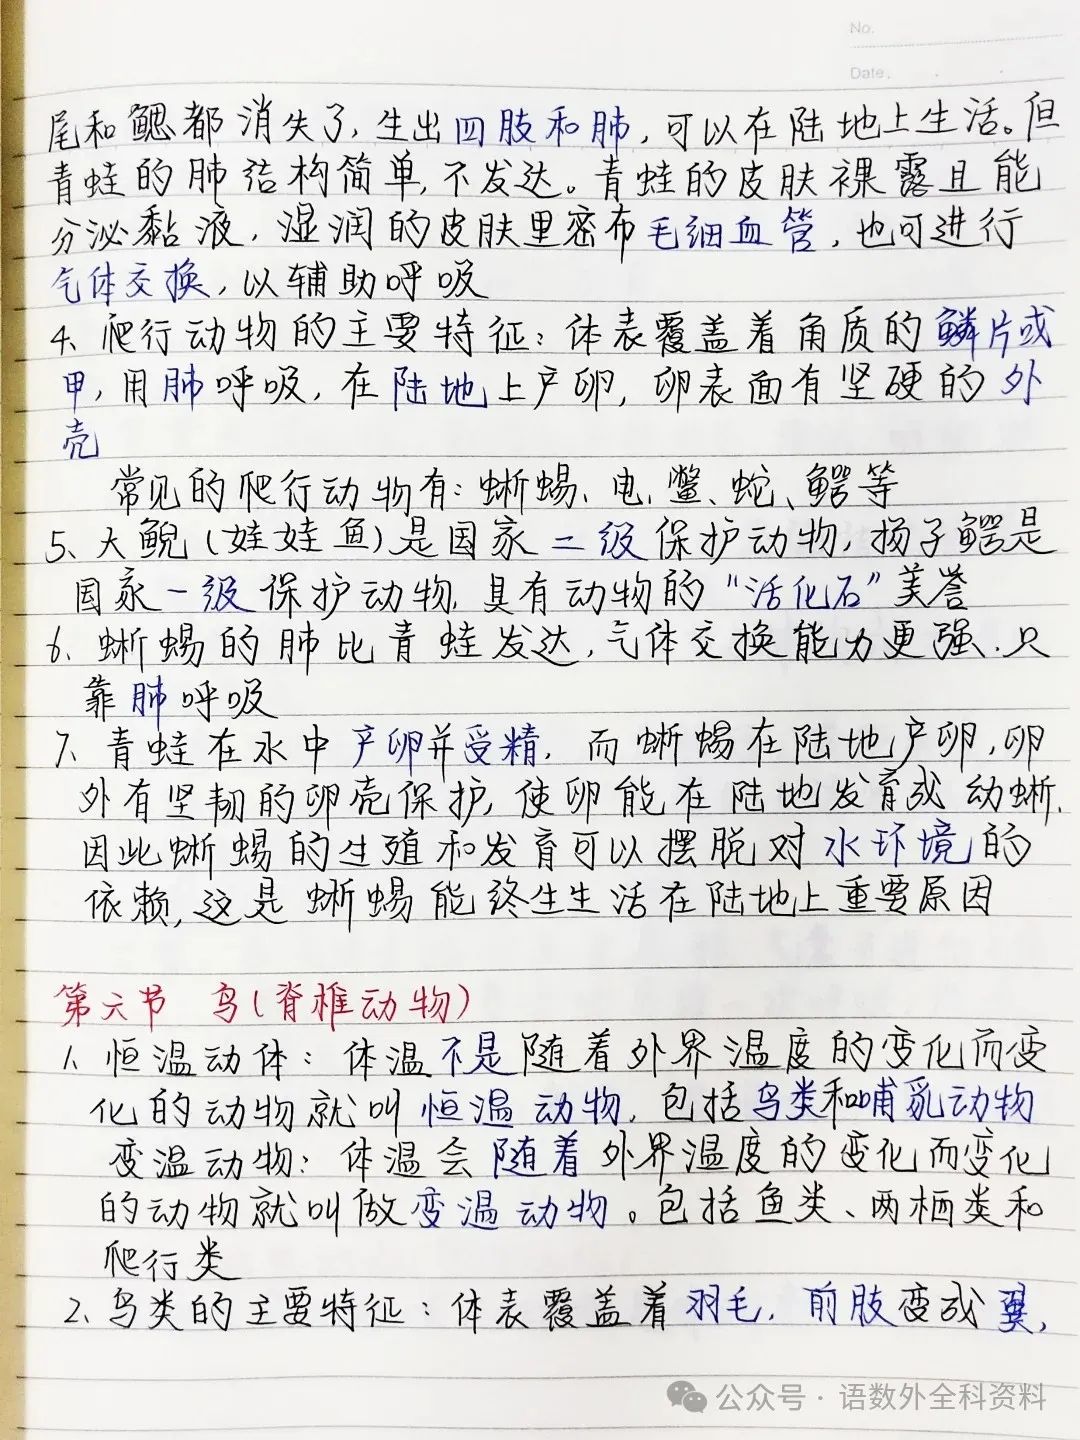 No.
Date.
尾和鳃都消失了,生出四肢和肺,可以在陆地上生活。但
青蛙的肺结构简单,不发达。青蛙的皮肤裸露且能
分泌黏液,湿润的皮肤里密布毛细血管,也可进行
气体交换,以辅助呼吸
4、爬行动物的主要特征:体表覆盖着角质的鳞片或
甲,用肺呼吸,在陆地上产卵,卵表面有坚硬的外
壳
常见的爬行动物有:蜥蜴、电、鳖、蛇、鳄等
5、大鲵(娃娃鱼)是国家二级保护动物,扬子鳄是
国家一级保护动物,具有动物的“活化石”美誉
6、蜥蜴的肺比青蛙发达,气体交换能力更强.只
靠肺呼吸
7、青蛙在水中产卵并受精,而蜥蜴在陆地产卵,卵
外有坚韧的卵壳保护,使卵能在陆地发育成动蜥.
因此蜥蜴的生殖和发育可以摆脱对水环境的
依赖,这是蜥蜴能终生生活在陆地上重要原因
第六节 鸟(脊椎动物)
1、恒温动体:体温不是随着外界温度的变化而变
化的动物就叫恒温动物,包括鸟类和哺乳动物
变温动物:体温会随着外界温度的变化而变化
的动物就叫做变温动物。包括鱼类、两栖类和
爬行类
2、鸟类的主要特征:体表覆盖着羽毛,前肢变成翼,
公众号·语数外全科资料